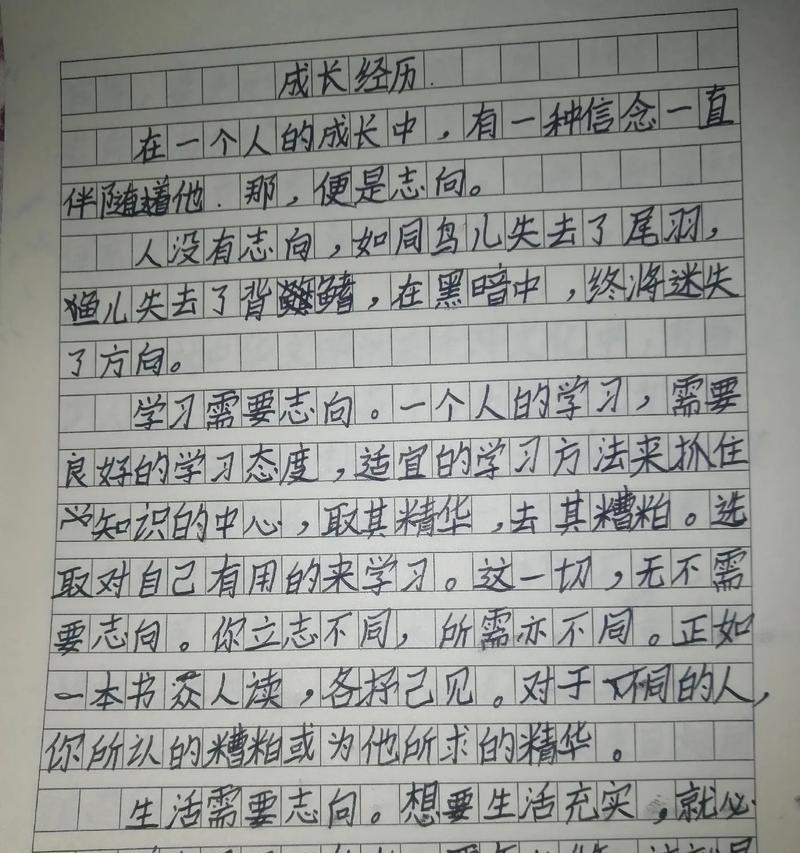 成长经历
在一个人的成长中，有一种信念一直
伴随着他．那，便是志向。
人没有志向，如同鸟儿失去了尾羽，
渔儿失去了背鳍，在黑暗中，终将迷失
了方向。
学习需要志向。一个人的学习，需要
良好的学习态度，适宜的学习方法来抓住
知识的中心，取其精华，去其糟粕。选
取对自己有用的来学习。这一切，无不需
要志向。你立志不同，所需亦不同。正如
一本书众人读，各抒己见。对于不同的人，
你所认的糟粕或为他所求的精华。
生活需要志向。想要生活充实，就必